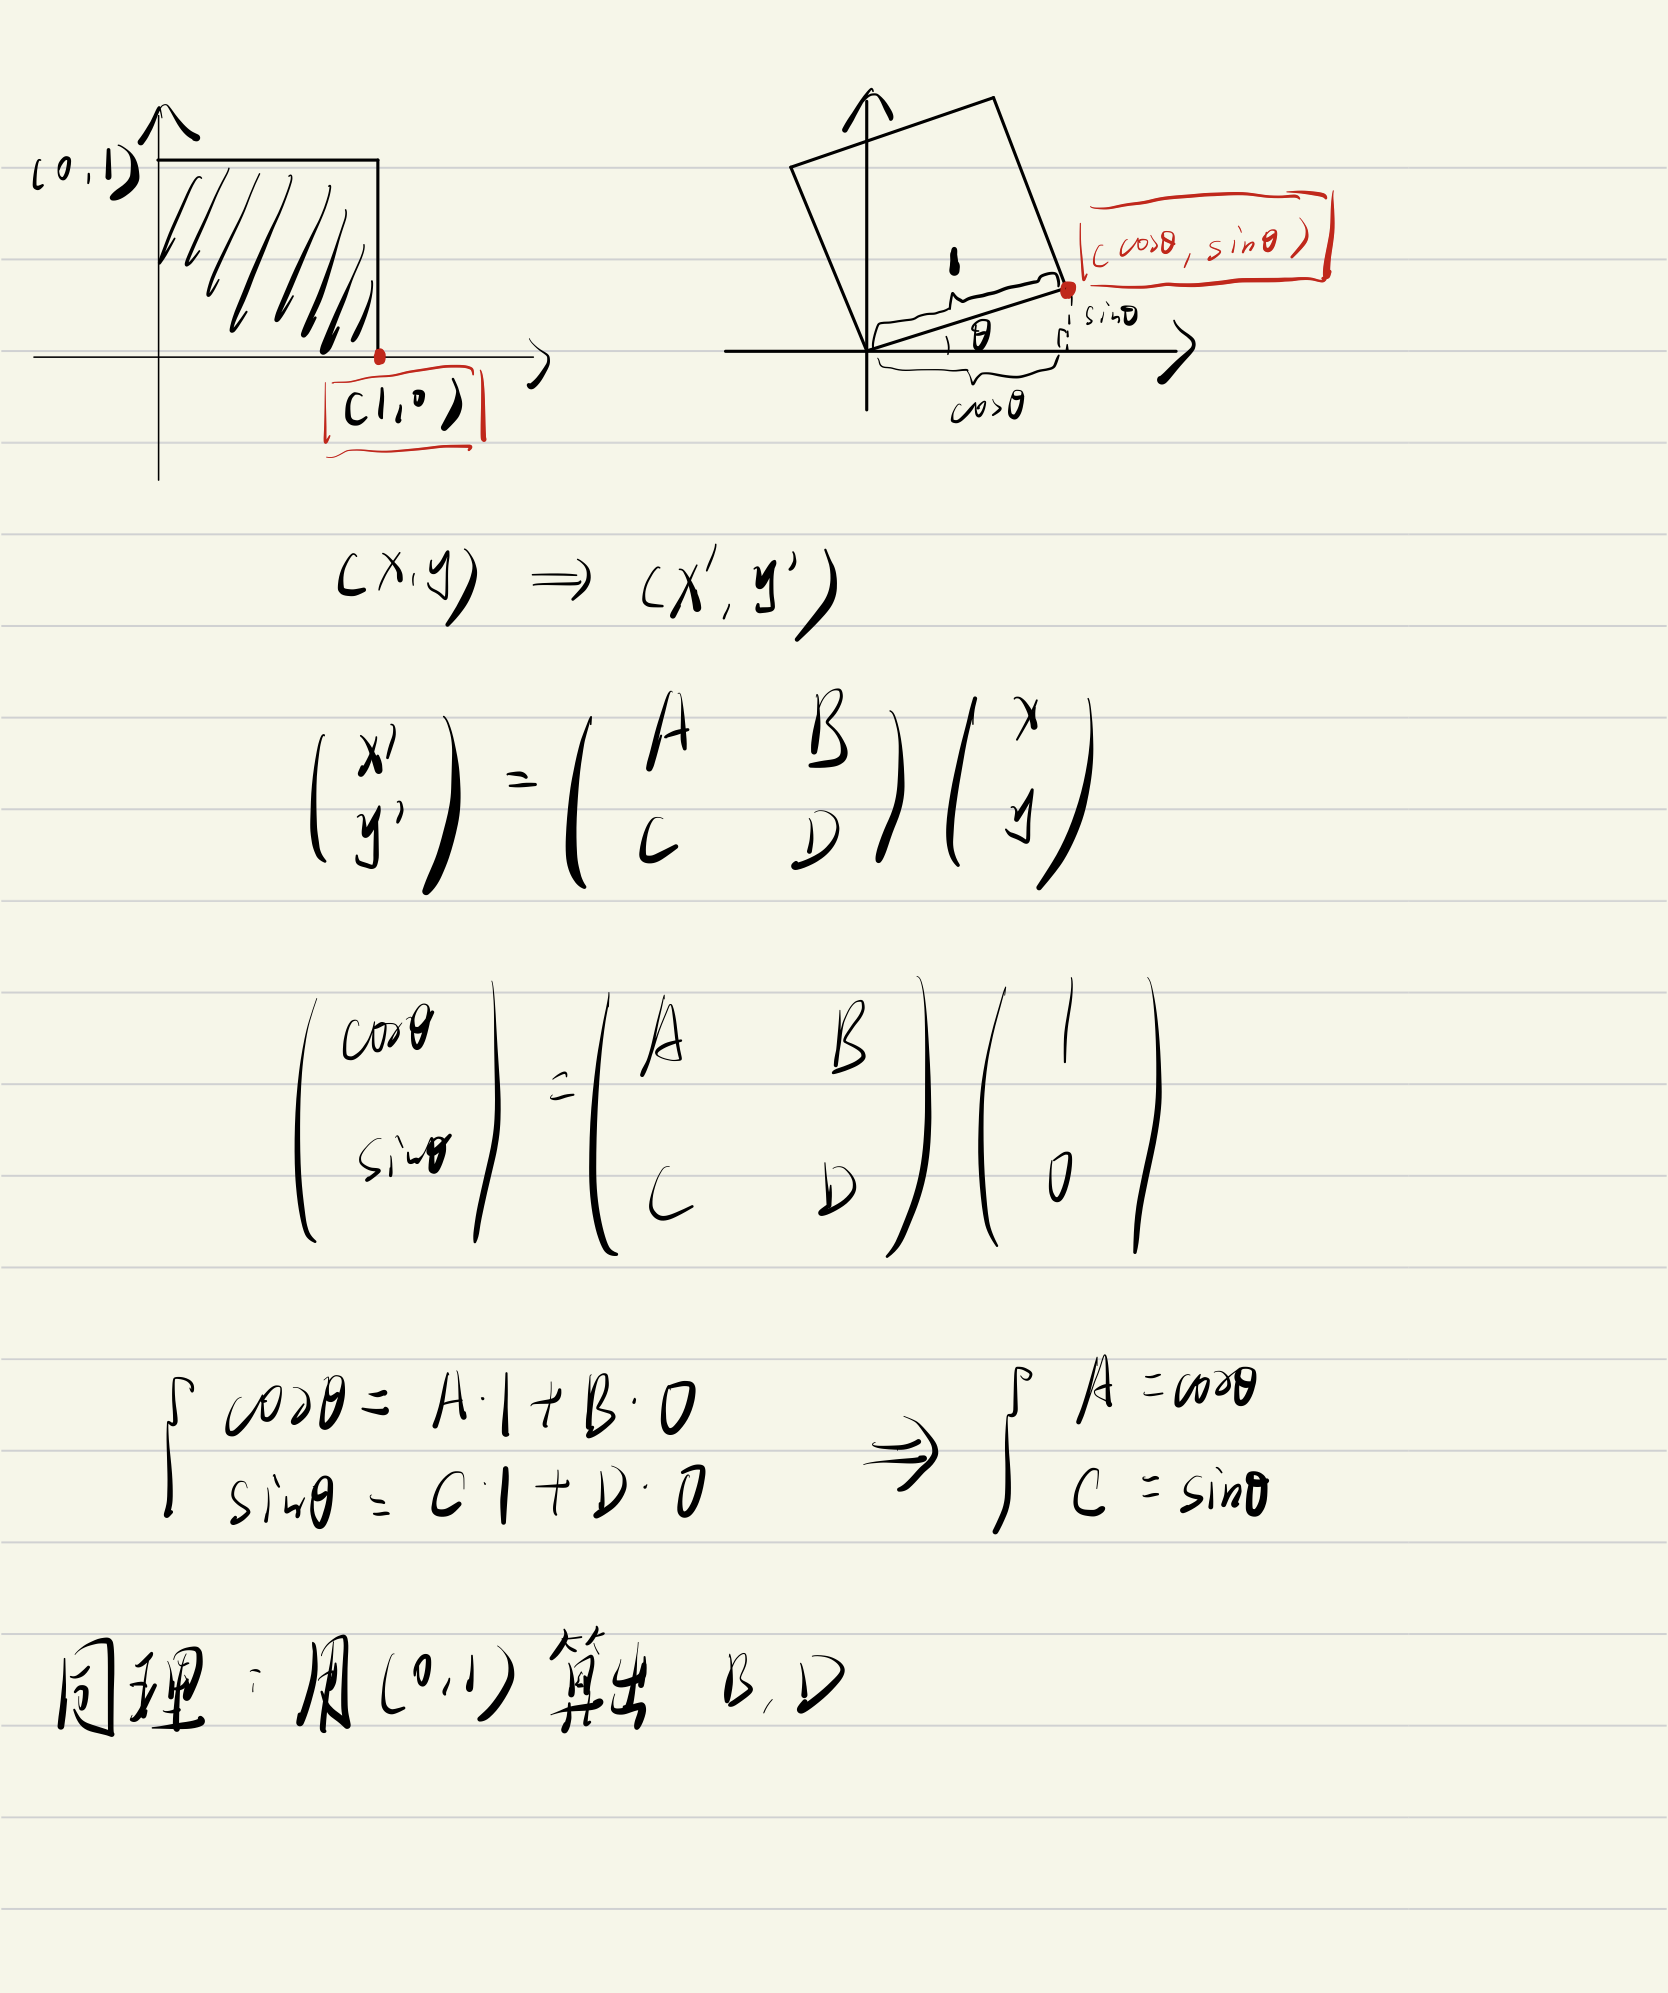 (0,1)
(1,0)
1
(cosθ, sinθ)
sinθ
θ
cosθ
(x,y) ⇒ (x', y')
(x' y') = (A B C D) (x y)
(cosθ sinθ) = (A B C D) (1 0)
{ cosθ = A·1+B·0 ⇒ { A = cosθ
sinθ = C·1+D·0 C = sinθ
同理：用(0,1)算出 B,D